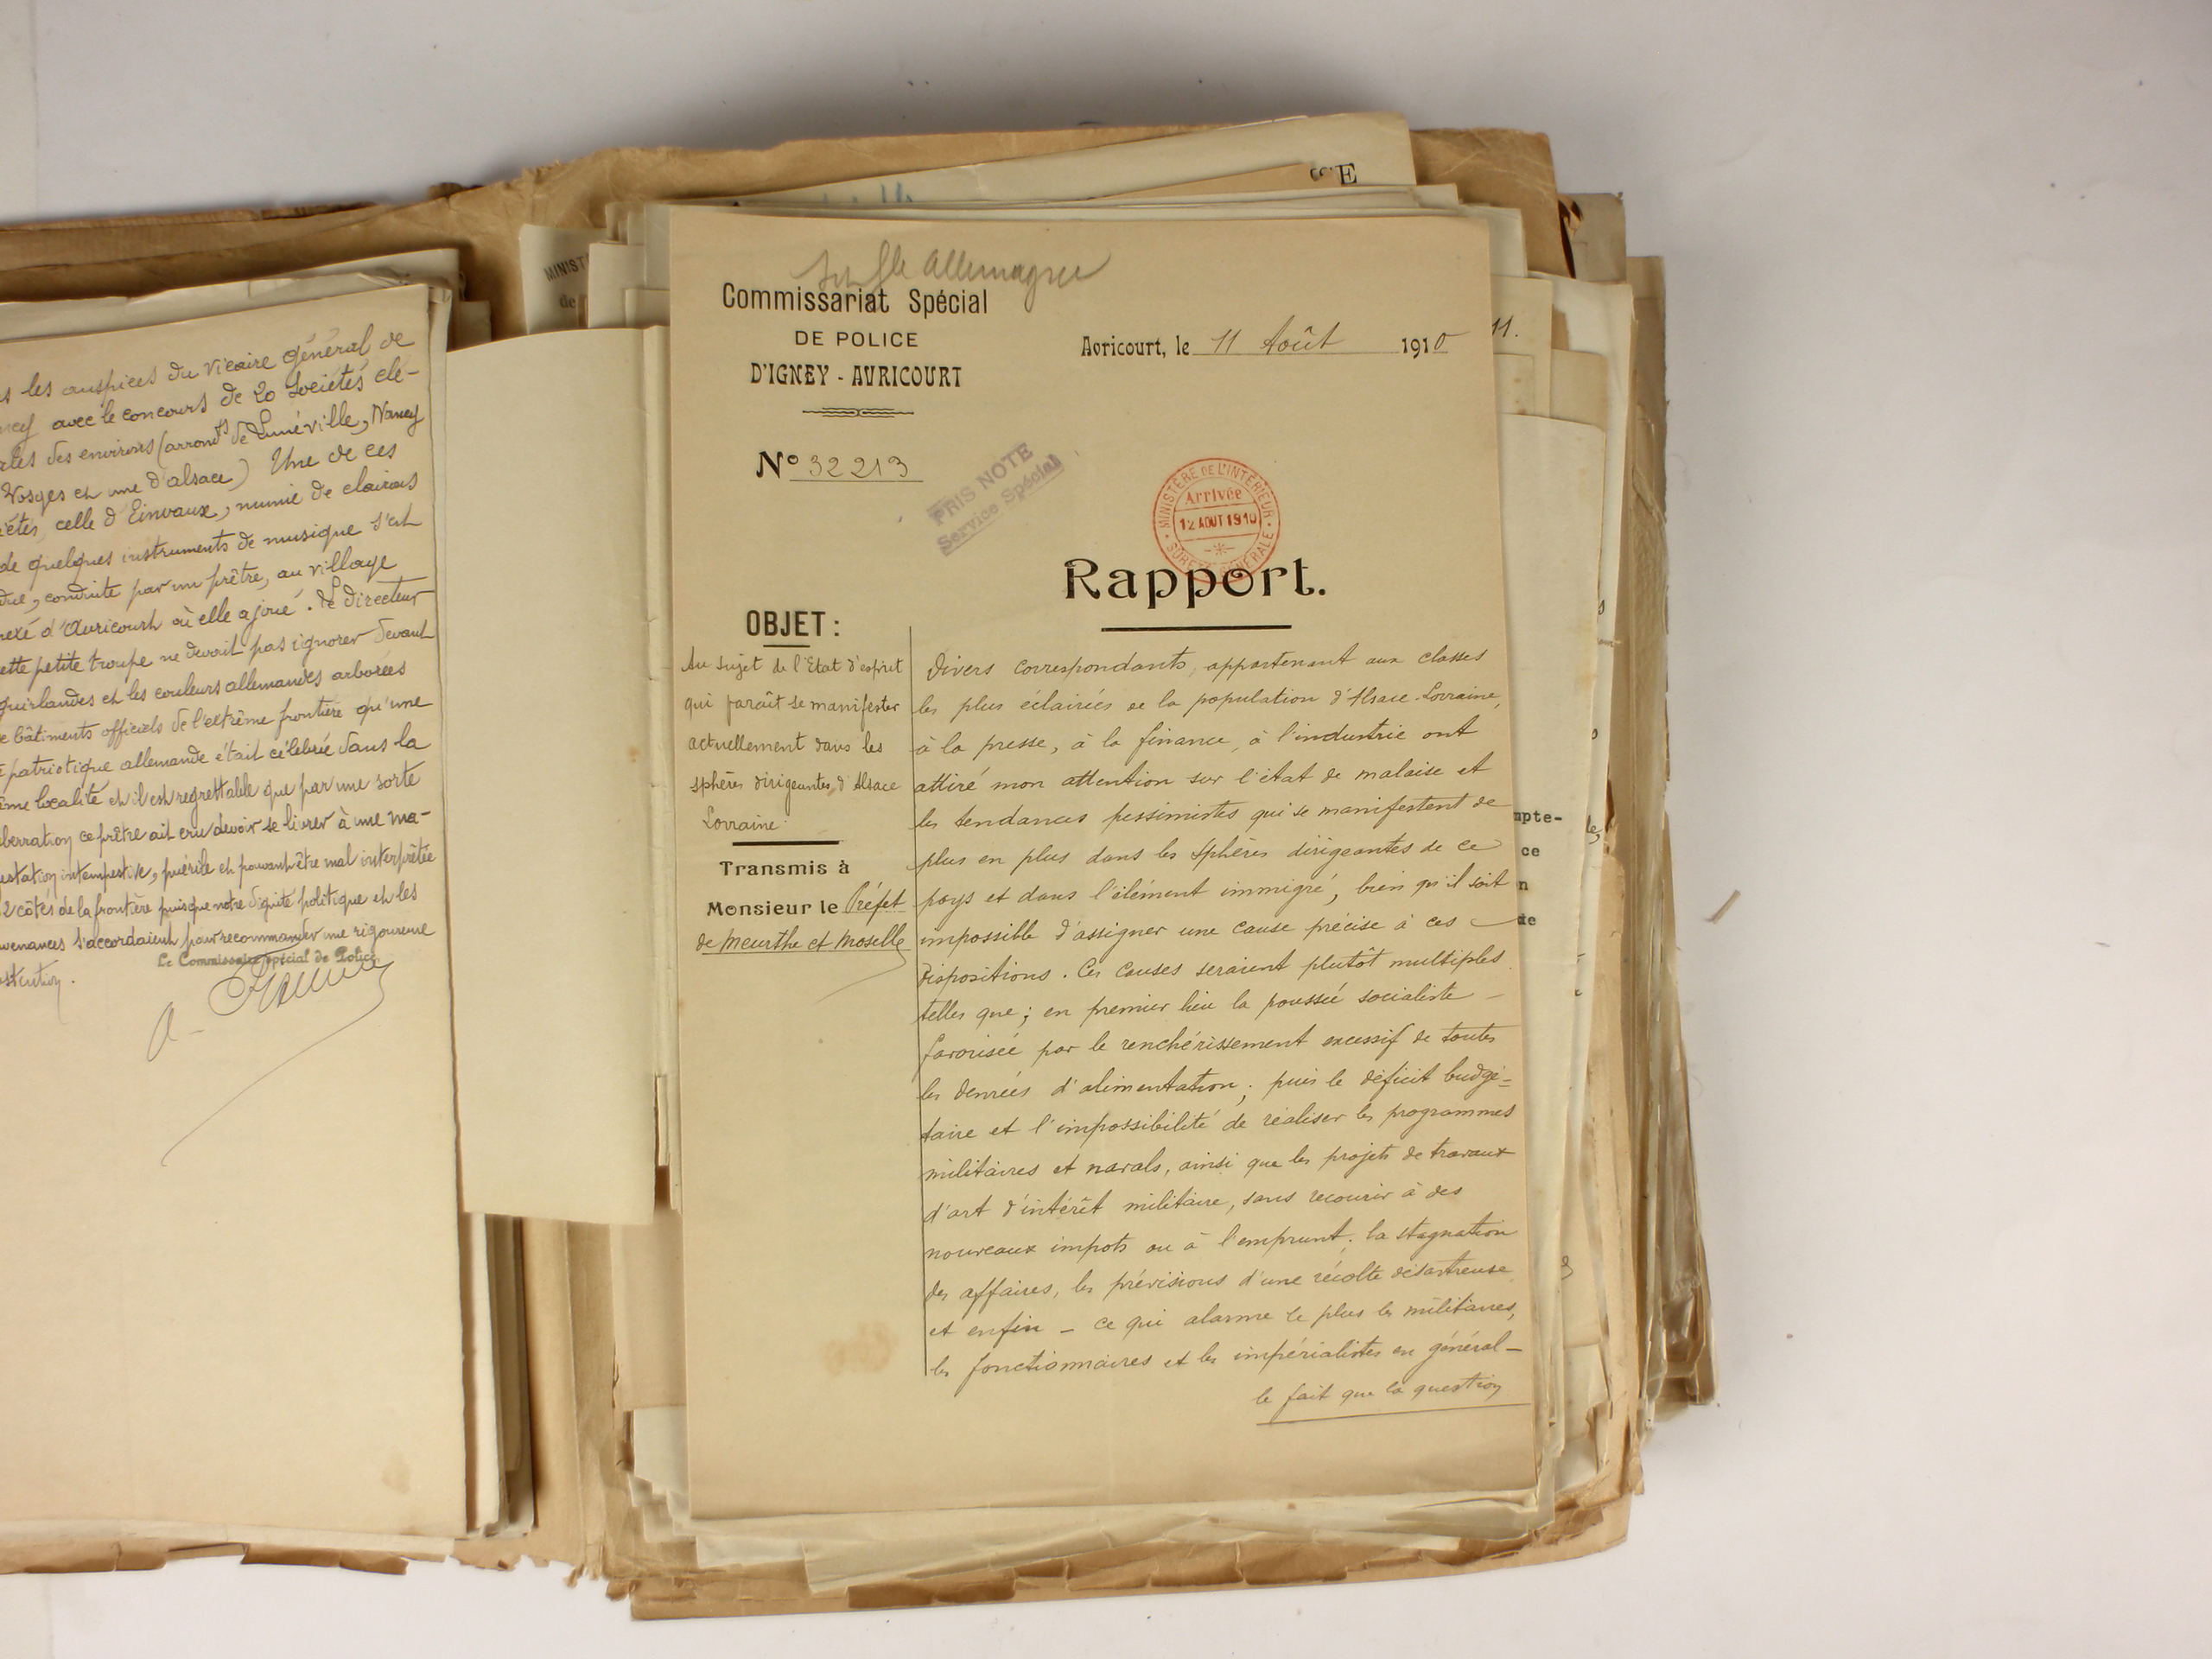 les auspices du vicaire général de
avec le concours de 20 Sociétés clé-
des environs (arrondts de Lunéville, Nancy
Vosges et une d'alsace) Une de ces
celle d'Einvaux, munie de clairons
de quelques instruments de musique s'est
conduite par un prêtre, au village
d'Avricourt où elle a joué. Le directeur
petite troupe ne devait pas ignorer devant
guirlandes et les couleurs allemandes arborées
bâtiments officiels de l'extrême frontière qu'une
patriotique allemande était célébrée dans la
localité et il est regrettable que par une sorte
ce prêtre ait cru devoir se livrer à une ma-
intempestive, puérile et pouvant être mal interprêtée
2 côtés de la frontière puisque notre dignité politique et les
s'accordaient pour recommander une rigoureuse
Le Commissaire spécial de Police
MINIST
de
E
Sur Gle Allemagne
Commissariat Spécial
DE POLICE
D'IGNEY - AVRICOURT
Avricourt, le 11 Août 1910
11.
No 32213
PRIS NOTE
Service Spécial
MINISTÈRE DE L'INTÉRIEUR
Arrivée
12 AOUT 1910
SURETÉ GÉNÉRALE
Rapport.
OBJET:
Au sujet de l'Etat d'esprit
qui paraît se manifester
actuellement dans les
sphères dirigeantes d'Alsace
Lorraine.
Transmis à
Monsieur le Préfet
de Meurthe et Moselle
Divers correspondants, appartenant aux classes
les plus éclairées de la population d'Alsace-Lorraine,
à la presse, à la finance, à l'industrie ont
attiré mon attention sur l'état de malaise et
les tendances pessimistes qui se manifestent de
plus en plus dans les sphères dirigeantes de ce
pays et dans l'élément immigré, bien qu'il soit
impossible d'assigner une cause précise à ces
dispositions. Ces causes seraient plutôt multiples
telles que; en premier lieu la poussée socialiste -
favorisée par le renchérissement excessif de toutes
les denrées d'alimentation; puis le déficit budgé-
taire et l'impossibilité de réaliser les programmes
militaires et navals, ainsi que les projets de travaux
d'art d'intérêt militaire, sans recourir à des
nouveaux impots ou à l'emprunt; la stagnation
des affaires, les prévisions d'une récolte désastreuse
et enfin - ce qui alarme le plus les militaires,
les fonctionnaires et les impérialistes en général -
le fait que la question
mpte-
ce
n
de